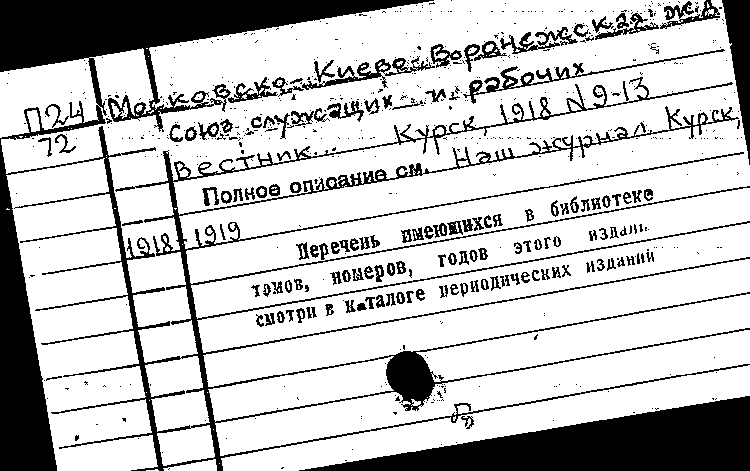 П24 Московско-Киево-Воронежская ж.д
72 Союз служащих и рабочих
Вестник... Курск, 1918 N 9-13
Полное описание см. Наш журнал. Курск,
1918-1919
Перечень имеющихся в библиотеке
томов, номеров, годов этого издания
смотри в каталоге периодических изданий